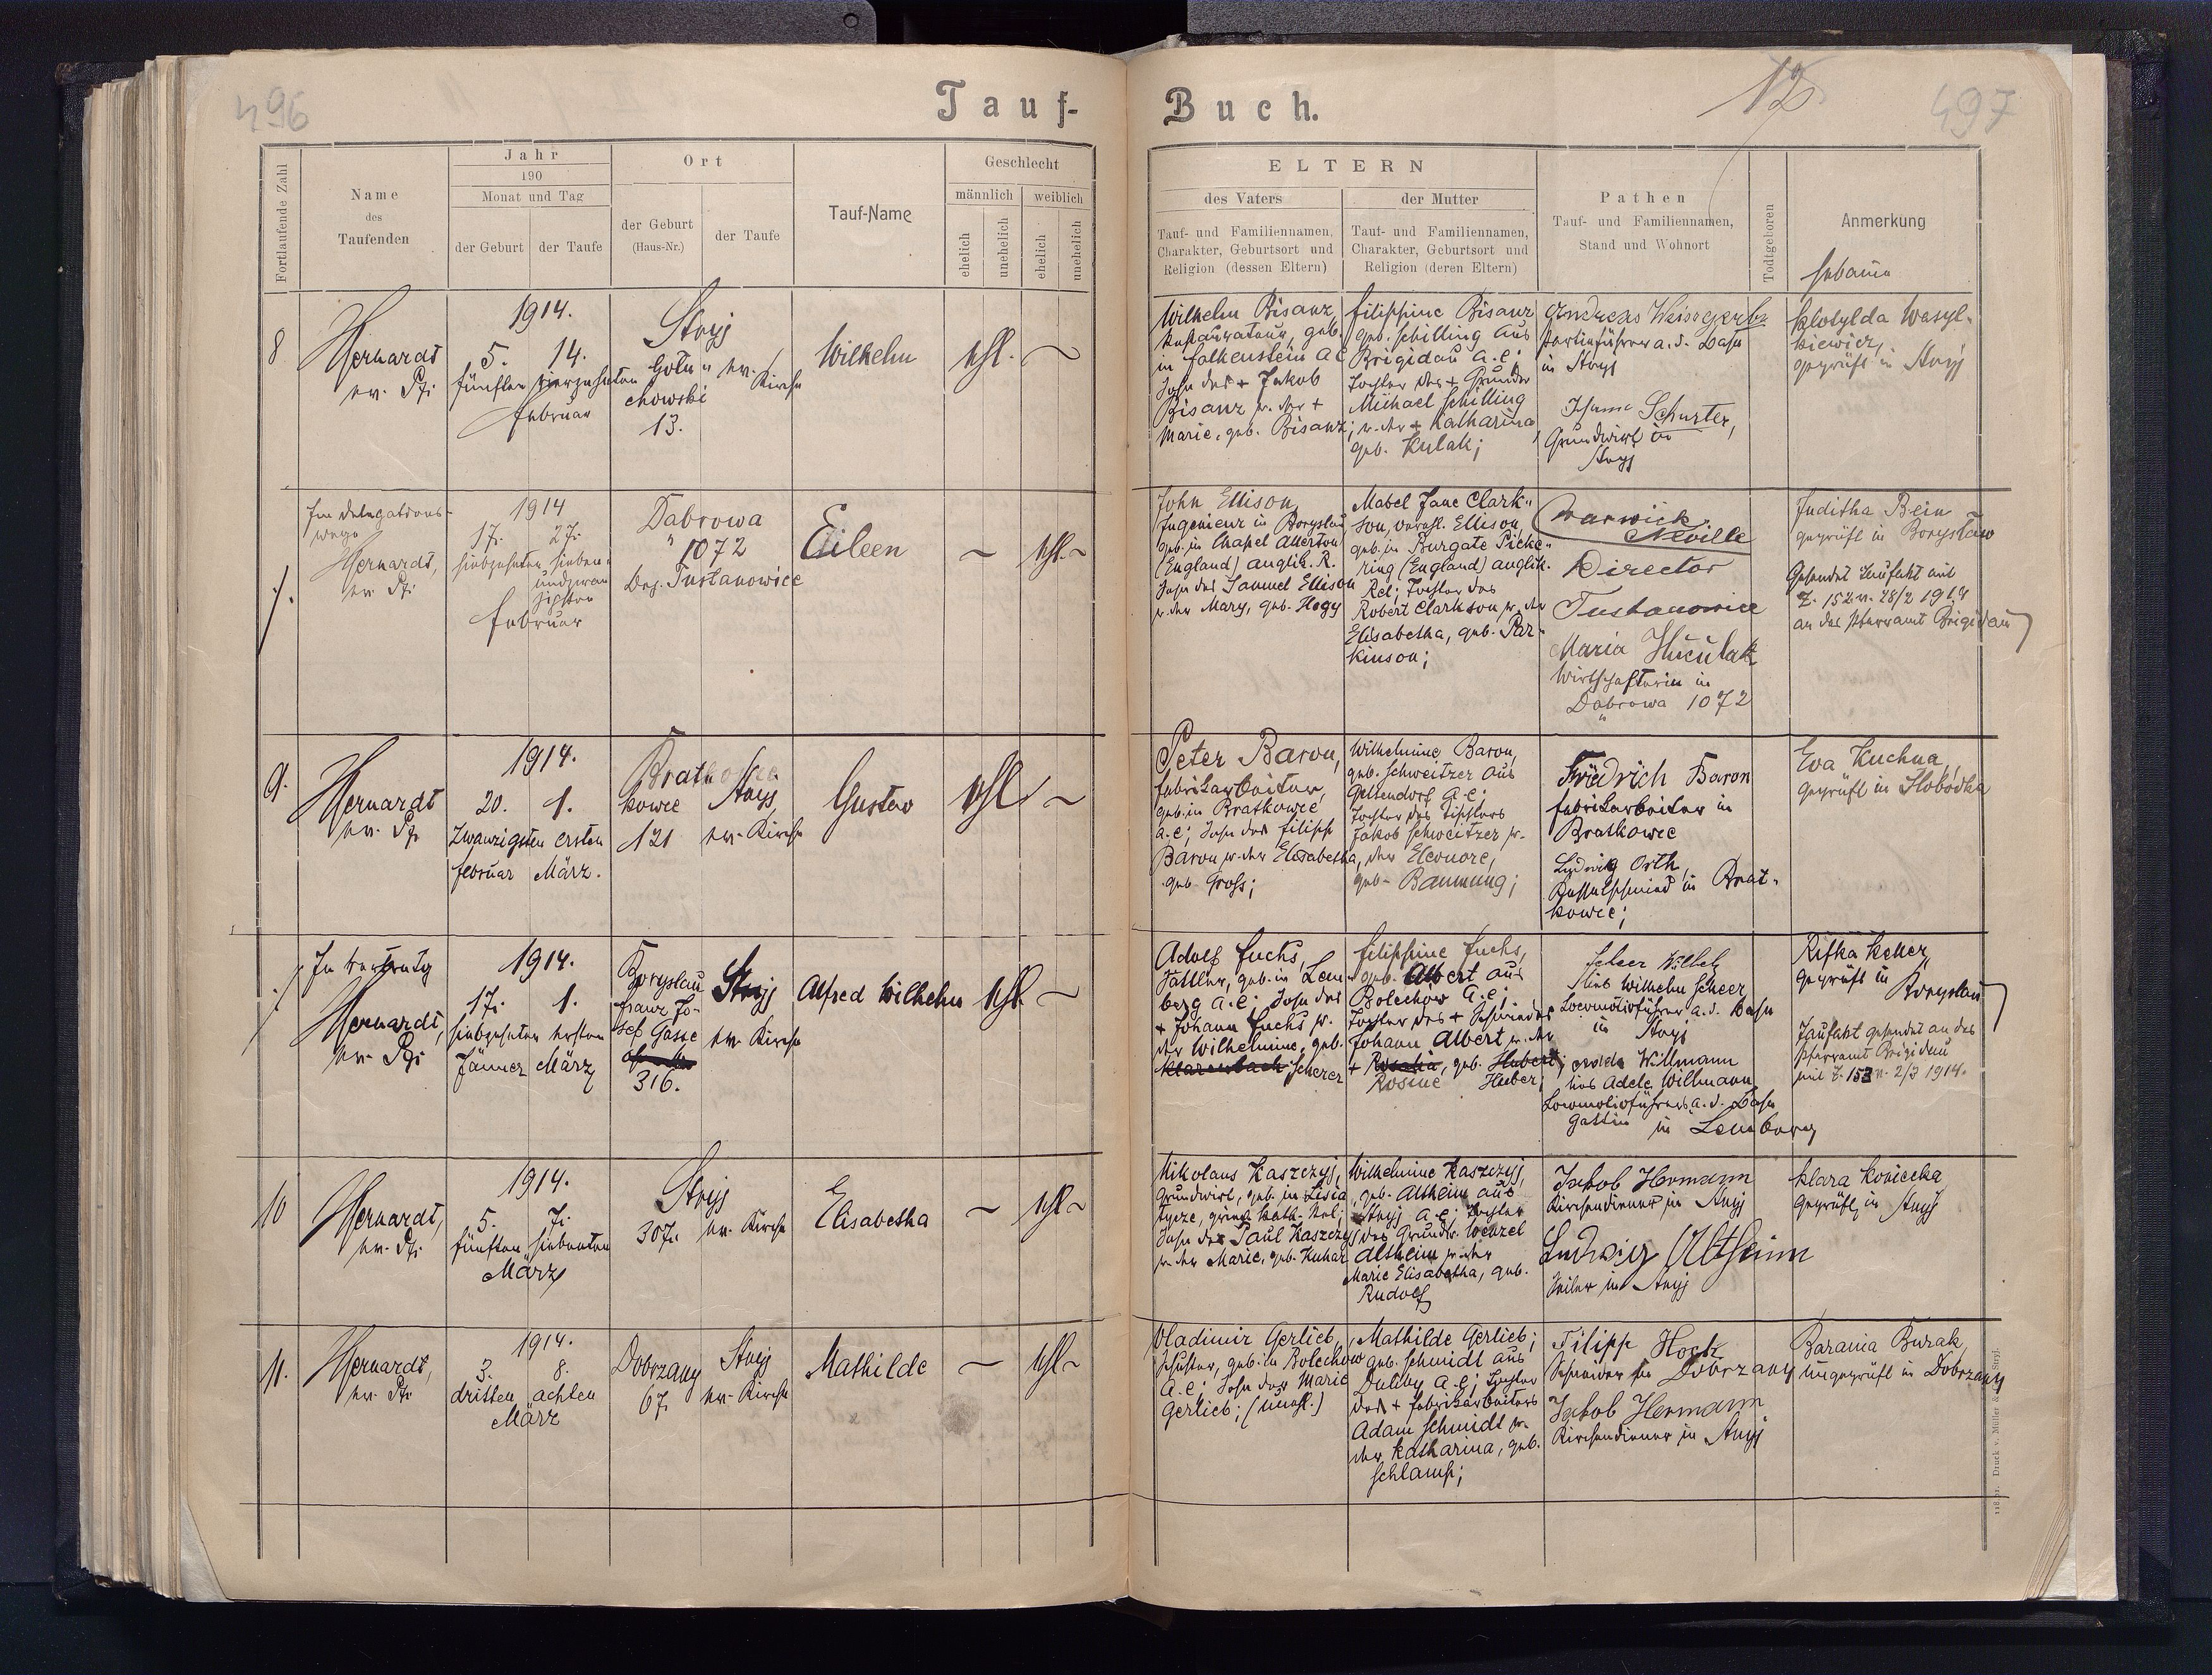 496
Tauf-
Fortlaufende Zahl
Name
des
Taufenden
Jahr
190
Monat und Tag
der Geburt
der Taufe
Ort
der Geburt
(Haus-Nr.)
der Taufe
Tauf-Name
Geschlecht
männlich
weiblich
ehelich
unehelich
ehelich
unehelich
8
Hernardt
ev. Pfr
1914.
5. 14.
fünften vierzehnten
Februar
Stryj
Golu"
chowski
13.
ev.
Kirche
Wilhelm
ehl. ~
Im Delegations-
wege
Hernardt,
ev. Pfr
1914
17. 27.
siebzehnten sieben
undzwan
zigsten
Februar
Dabrowa
1072
Bez. Tustanowice
Eileen
~ ehl. ~
9.
Hernardt
ev. Pfr
1914.
20. 1.
zwanzigsten ersten
Februar März.
Brat
kowce
121
Stryj
ev. Kirche
Gustav
ehl. ~
In Vertretung
Hernardt,
ev. Pfr
1914.
17. 1.
siebzehnten ersten
Jänner März
Boryslau
Franz Jo-
sef Gasse
316.
Stryj
ev. Kirche
Alfred Wilhelm
ehl. ~
10
Hernardt,
ev. Pfr
1914.
5. 7.
fünften siebenten
März
Stryj
307.
ev. Kirche
Elisabetha
~ ehl ~
11.
Hernardt,
ev. Pfr
1914.
3. 8.
dritten achten
März
Dobrzany
67.
Stryj
ev. Kirche
Mathilde
~ ehl ~
Buch.
12
497
ELTERN
des Vaters
Tauf- und Familiennamen,
Charakter, Geburtsort und
Religion (dessen Eltern)
der Mutter
Tauf- und Familiennamen,
Charakter, Geburtsort und
Religion (deren Eltern)
Pathen
Tauf- und Familiennamen,
Stand und Wohnort
Todtgeboren
Anmerkung
Hebamme
Wilhelm Bisanz,
Restaurateur, geb.
in Falkenstein A C
Sohn des + Jakob
Bisanz u. der +
Marie, geb. Bisanz;
Filippine Bisanz
geb. Schilling aus
Brigidau A.C;
Tochter des + Grundw
Michael Schilling
u. der + Katharina,
geb. Kulak;
Andreas Weissgerber
Partieführer a. d. Bahn
in Stryj
Schuster,
Grundwirt in
Stryj
Klotylda Wasyl-
kiewicz,
geprüft in Stryj
John Ellison,
Ingenieur in Boryslau,
geb. in Chapel Allerton
(England) anglik. R.
Sohn des Samuel Ellison
u. der Mary, geb. Hogy
Mabel Jane Clark"
son, verehl. Ellison,
geb. in Burgate Picke"
ring (England) anglik.
Rel; Tochter des
Robert Clarkson u. der
Elisabetha, geb. Par"
kinson;
Warwick
Neville
Director
Tustanowice
Maria Huculak
Wirtschafterin in
Dabrowa 1072
Juditha Bein
geprüft in Boryslaw
Gesendet Taufakt mit
Z. 152 v. 28/2 1914
an das Pfarramt Brigidau
Peter Baron,
Fabrikarbeiter,
geb. in Bratkowce
A.C; Sohn des Filipp
Baron u. der Elisabetha,
geb. Gross;
Wilhelmine Baron,
geb. Schweitzer aus
Gelsendorf A.C;
Tochter des Tischlers
Jakob Schweitzer u.
der Eleonore,
geb. Baumung;
Friedrich Baron
Fabrikarbeiter in
Bratkowce
Ludwig Orth,
Kesselschmied in Brat-
kowce;
Eva Kuchna,
geprüft in Slobodka
Adolf Fuchs,
Sattler, geb. in Lem
berg A.C; Sohn des
+ Johann Fuchs u.
der Wilhelmine, geb.
Klarenbach Scherer
Filippine Fuchs,
geb. Albert aus
Bolechow A.C;
Tochter des + Schmiedes
Johann Albert u. der
+ Rosalia, geb. Hubert;
Rosine Huber;
Scheer Wilhelm
lies Wilhelm Scheer
Locomotivführer a. d. Bahn
in Stryj
Willmann
lies Adele Willmann
Locomotivführers a. d. Bahn
Gattin in Lemberg
Rifka Keller,
geprüft in
Boryslau
Taufakt gesendet an das
Pfarramt Brigidau
mit Z. 153 v. 2/3 1914.
Nikolaus Kaszczyj,
Grundwirt, geb. in Lisia
tycze, griech. kath. Rel;
Sohn des Paul Kaszczyj
u. der Marie, geb. Kuhar
Wilhelmine Kaszczyj,
geb. Altheim aus
Stryj A.C; Tochter
des Grundw. Wenzel
Altheim u. der
Marie Elisabetha, geb.
Rudolf
Jakob Hermann
Kirchendiener in Stryj
Ludwig Altheim
Seiler in Stryj
Klara Kosiecka
geprüft in Stryj
Vladimir Gerlieb,
Schuster, geb. in Bolechow
A.C; Sohn der Marie
Gerlieb; (unehl.)
Mathilde Gerlieb;
geb. Schmidt aus
Duliby A.C; Tochter
des + Fabrikarbeiters
Adam Schmidt u.
der Katharina, geb.
Schlamp;
Filipp Hock
Schneider in Dobrzany
Jakob Hermann
Kirchendiener in Stryj
Barania Burak
ungeprüft in Dobrzany
Druck v. Müller & Stryj.